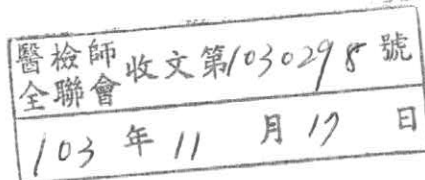 醫檢師全聯會收文第1030298號
103年11月17日